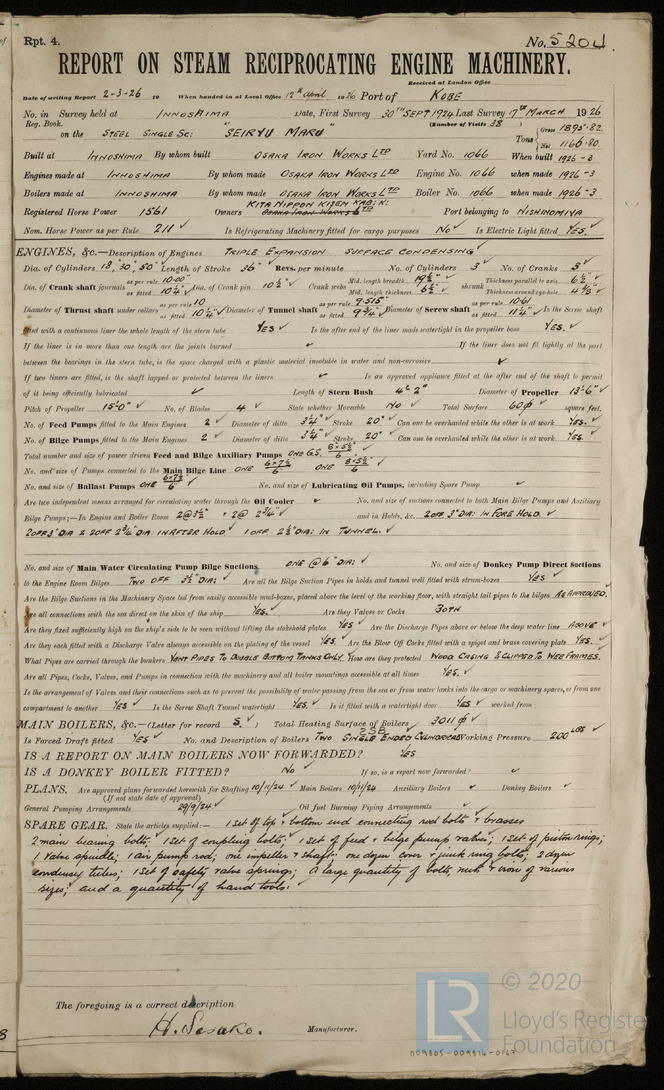 Rpt. 4. No. 5204.
REPORT ON STEAM RECIPROCATING ENGINE MACHINERY.
Received at London Office
Date of writing Report 2-3-26 19 When handed in at Local Office 12th April 1926 Port of KOBE
No. in Survey held at INNOSHIMA Date, First Survey 30TH SEPT 1924 Last Survey 17TH MARCH 1926
Reg. Book. (Number of Visits 38)
on the STEEL SINGLE SC: "SEIRYU MARU" Tons Gross 1895.82
Net 1166.80
Built at INNOSHIMA By whom built OSAKA IRON WORKS LTD Yard No. 1066 When built 1926-3
Engines made at INNOSHIMA By whom made OSAKA IRON WORKS LTD Engine No. 1066 when made 1926-3
Boilers made at INNOSHIMA By whom made OSAKA IRON WORKS LTD Boiler No. 1066 when made 1926-3
KITA NIPPON KISEN KAB: K:
Registered Horse Power 1561 Owners OSAKA IRON WORKS LTD Port belonging to NISHINOMIYA
Nom. Horse Power as per Rule 211 ✓ Is Refrigerating Machinery fitted for cargo purposes NO ✓ Is Electric Light fitted YES. ✓
ENGINES, &c.—Description of Engines TRIPLE EXPANSION SURFACE CONDENSING ✓
Dia. of Cylinders 18", 30", 50" Length of Stroke 36" Revs. per minute No. of Cylinders 3 ✓ No. of Cranks 3 ✓
Dia. of Crank shaft journals as per rule 10.00 as fitted 10¼" ✓ Dia. of Crank pin 10½" ✓ Crank webs Mid. length breadth 19½" ✓ Mid. length thickness 6½" ✓ shrunk Thickness parallel to axis 6½" ✓ Thickness around eye-hole 4⅝" ✓
Diameter of Thrust shaft under collars as per rule 10 as fitted 10¼" ✓ Diameter of Tunnel shaft as per rule 9.515 as fitted 9¾" ✓ Diameter of Screw shaft as per rule 10.61 as fitted 11¼" ✓ Is the Screw shaft
fitted with a continuous liner the whole length of the stern tube YES ✓ Is the after end of the liner made watertight in the propeller boss YES. ✓
If the liner is in more than one length are the joints burned ✓ If the liner does not fit tightly at the part
between the bearings in the stern tube, is the space charged with a plastic material insoluble in water and non-corrosive ✓
If two liners are fitted, is the shaft lapped or protected between the liners ✓ Is an approved appliance fitted at the after end of the shaft to permit
of it being efficiently lubricated ✓ Length of Stern Bush 4'-2" Diameter of Propeller 13'-6" ✓
Pitch of Propeller 15'-0" ✓ No. of Blades 4 ✓ State whether Moveable NO ✓ Total Surface 60 ✓ square feet.
No. of Feed Pumps fitted to the Main Engines 2 ✓ Diameter of ditto 3¼" ✓ Stroke 20" ✓ Can one be overhauled while the other is at work YES. ✓
No. of Bilge Pumps fitted to the Main Engines 2 ✓ Diameter of ditto 3¼" ✓ Stroke 20" ✓ Can one be overhauled while the other is at work YES. ✓
Total number and size of power driven Feed and Bilge Auxiliary Pumps ONE G.S.
No. and size of Pumps connected to the Main Bilge Line ONE ONE
No. and size of Ballast Pumps ONE No. and size of Lubricating Oil Pumps, including Spare Pump ✓
Are two independent means arranged for circulating water through the Oil Cooler ✓ No. and size of suctions connected to both Main Bilge Pumps and Auxiliary
Bilge Pumps;—In Engine and Boiler Room 2 @ 3½" + 2 @ 2¾" ✓ and in Holds, &c. 2 OFF 3" DIA: IN FORE HOLD. ✓
2 OFF 3" DIA 2 OFF 2¾" DIA IN AFTER HOLD. 1 OFF 2½" DIA: IN TUNNEL. ✓
No. and size of Main Water Circulating Pump Bilge Suctions ONE @ 6" DIA: ✓ No. and size of Donkey Pump Direct Suctions
to the Engine Room Bilges TWO OFF 3½" DIA: ✓ Are all the Bilge Suction Pipes in holds and tunnel well fitted with strum-boxes YES ✓
Are the Bilge Suctions in the Machinery Space led from easily accessible mud-boxes, placed above the level of the working floor, with straight tail pipes to the bilges AS APPROVED.
Are all connections with the sea direct on the skin of the ship YES. ✓ Are they Valves or Cocks BOTH
Are they fixed sufficiently high on the ship's side to be seen without lifting the stokehold plates YES ✓ Are the Discharge Pipes above or below the deep water line ABOVE ✓
Are they each fitted with a Discharge Valve always accessible on the plating of the vessel YES ✓ Are the Blow Off Cocks fitted with a spigot and brass covering plate YES. ✓
What Pipes are carried through the bunkers VENT PIPES TO DOUBLE BOTTOM TANKS ONLY. How are they protected WOOD CASING & CLIPPED TO WEB FRAMES.
Are all Pipes, Cocks, Valves, and Pumps in connection with the machinery and all boiler mountings accessible at all times YES. ✓
Is the arrangement of Valves and their connections such as to prevent the possibility of water passing from the sea or from water tanks into the cargo or machinery spaces, or from one
compartment to another YES ✓ Is the Screw Shaft Tunnel watertight YES. ✓ Is it fitted with a watertight door YES ✓ worked from
MAIN BOILERS, &c.—(Letter for record S. ✓) Total Heating Surface of Boilers 3011 ✓
2SB
Is Forced Draft fitted YES ✓ No. and Description of Boilers TWO SINGLE ENDED CYLINDRICAL Working Pressure 200 LBS ✓
IS A REPORT ON MAIN BOILERS NOW FORWARDED? YES
IS A DONKEY BOILER FITTED? NO ✓ If so, is a report now forwarded? ✓
PLANS. Are approved plans forwarded herewith for Shafting 10/11/24 ✓ Main Boilers 10/11/24 Auxiliary Boilers ✓ Donkey Boilers ✓
(If not state date of approval)
General Pumping Arrangements 29/9/24 ✓ Oil fuel Burning Piping Arrangements ✓
SPARE GEAR. State the articles supplied:— 1 set of top & bottom end connecting rod bolts & brasses
2 main bearing bolts; 1 set of coupling bolts; 1 set of feed & bilge pump valves; 1 set of piston rings;
1 valve spindle; 1 air pump rod; one impeller & shaft; one dozen cover & junk ring bolts; 2 dozen
condenser tubes; 1 set of safety valve springs; a large quantity of bolts, nuts & iron of various
sizes; and a quantity of hand tools.
The foregoing is a correct description
H. Sasako. Manufacturer.
© 2020
LR
Lloyd's Register
Foundation
009805-009814-0167